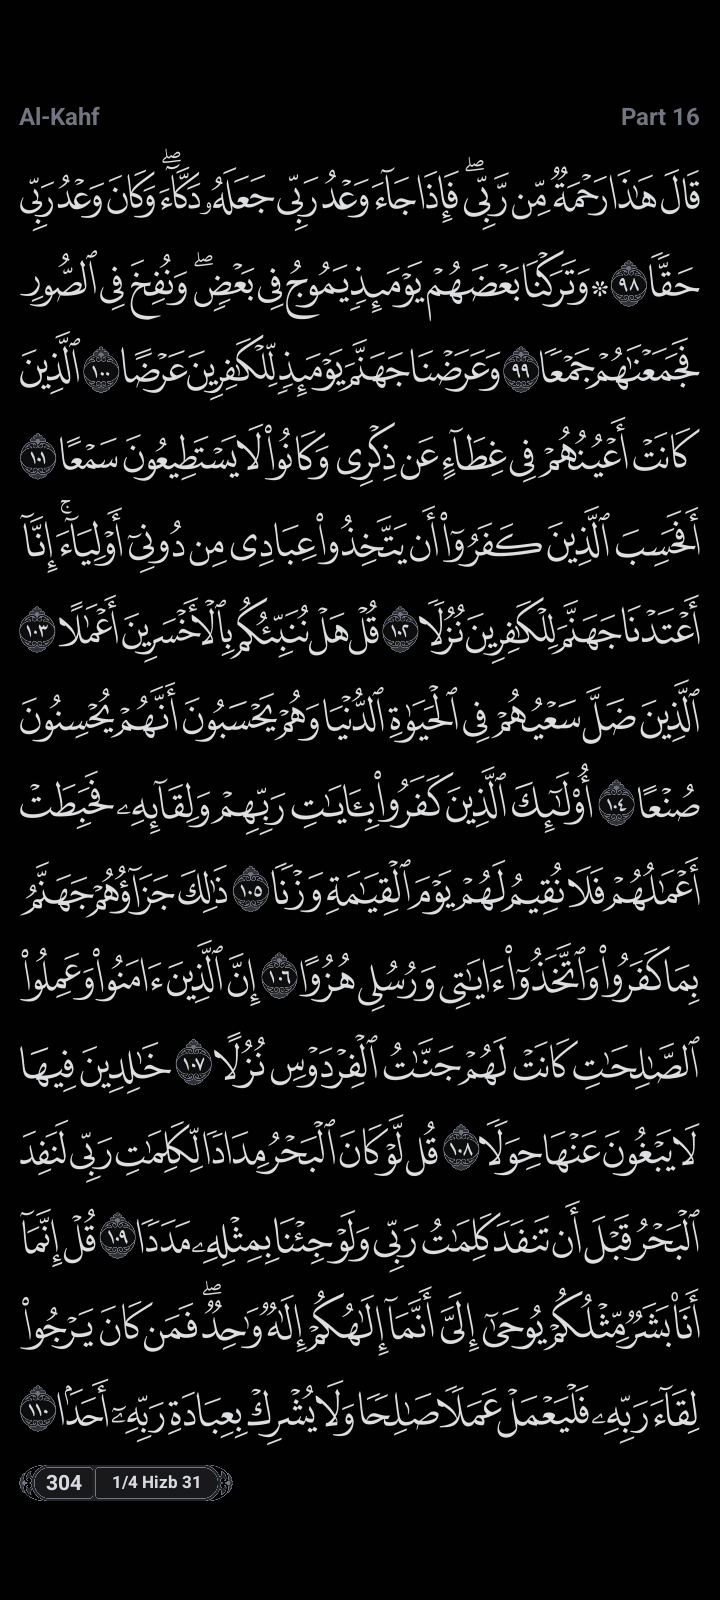 Al-Kahf Part 16
قَالَ هَٰذَا رَحْمَةٌ مِّن رَّبِّي ۖ فَإِذَا جَآءَ وَعْدُ رَبِّي جَعَلَهُۥ دَكَّآءَ ۖ وَكَانَ وَعْدُ رَبِّي
حَقًّا ٩٨ ۞ وَتَرَكْنَا بَعْضَهُمْ يَوْمَئِذٍ يَمُوجُ فِي بَعْضٍ ۖ وَنُفِخَ فِي ٱلصُّورِ
فَجَمَعْنَٰهُمْ جَمْعًا ٩٩ وَعَرَضْنَا جَهَنَّمَ يَوْمَئِذٍ لِّلْكَٰفِرِينَ عَرْضًا ١٠٠ ٱلَّذِينَ
كَانَتْ أَعْيُنُهُمْ فِي غِطَآءٍ عَن ذِكْرِي وَكَانُوا۟ لَا يَسْتَطِيعُونَ سَمْعًا ١٠١
أَفَحَسِبَ ٱلَّذِينَ كَفَرُوٓا۟ أَن يَتَّخِذُوا۟ عِبَادِي مِن دُونِيٓ أَوْلِيَآءَ ۚ إِنَّآ
أَعْتَدْنَا جَهَنَّمَ لِلْكَٰفِرِينَ نُزُلًا ١٠٢ قُلْ هَلْ نُنَبِّئُكُم بِٱلْأَخْسَرِينَ أَعْمَٰلًا ١٠٣
ٱلَّذِينَ ضَلَّ سَعْيُهُمْ فِي ٱلْحَيَوٰةِ ٱلدُّنْيَا وَهُمْ يَحْسَبُونَ أَنَّهُمْ يُحْسِنُونَ
صُنْعًا ١٠٤ أُو۟لَٰٓئِكَ ٱلَّذِينَ كَفَرُوا۟ بِـَٔايَٰتِ رَبِّهِمْ وَلِقَآئِهِۦ فَحَبِطَتْ
أَعْمَٰلُهُمْ فَلَا نُقِيمُ لَهُمْ يَوْمَ ٱلْقِيَٰمَةِ وَزْنًا ١٠٥ ذَٰلِكَ جَزَآؤُهُمْ جَهَنَّمُ
بِمَا كَفَرُوا۟ وَٱتَّخَذُوٓا۟ ءَايَٰتِي وَرُسُلِي هُزُوًا ١٠٦ إِنَّ ٱلَّذِينَ ءَامَنُوا۟ وَعَمِلُوا۟
ٱلصَّٰلِحَٰتِ كَانَتْ لَهُمْ جَنَّٰتُ ٱلْفِرْدَوْسِ نُزُلًا ١٠٧ خَٰلِدِينَ فِيهَا
لَا يَبْغُونَ عَنْهَا حِوَلًا ١٠٨ قُل لَّوْ كَانَ ٱلْبَحْرُ مِدَادًا لِّكَلِمَٰتِ رَبِّي لَنَفِدَ
ٱلْبَحْرُ قَبْلَ أَن تَنفَدَ كَلِمَٰتُ رَبِّي وَلَوْ جِئْنَا بِمِثْلِهِۦ مَدَدًا ١٠٩ قُلْ إِنَّمَآ
أَنَا۠ بَشَرٌ مِّثْلُكُمْ يُوحَىٰٓ إِلَيَّ أَنَّمَآ إِلَٰهُكُمْ إِلَٰهٌ وَٰحِدٌ ۖ فَمَن كَانَ يَرْجُوا۟
لِقَآءَ رَبِّهِۦ فَلْيَعْمَلْ عَمَلًا صَٰلِحًا وَلَا يُشْرِكْ بِعِبَادَةِ رَبِّهِۦٓ أَحَدًۢا ١١٠
304 1/4 Hizb 31